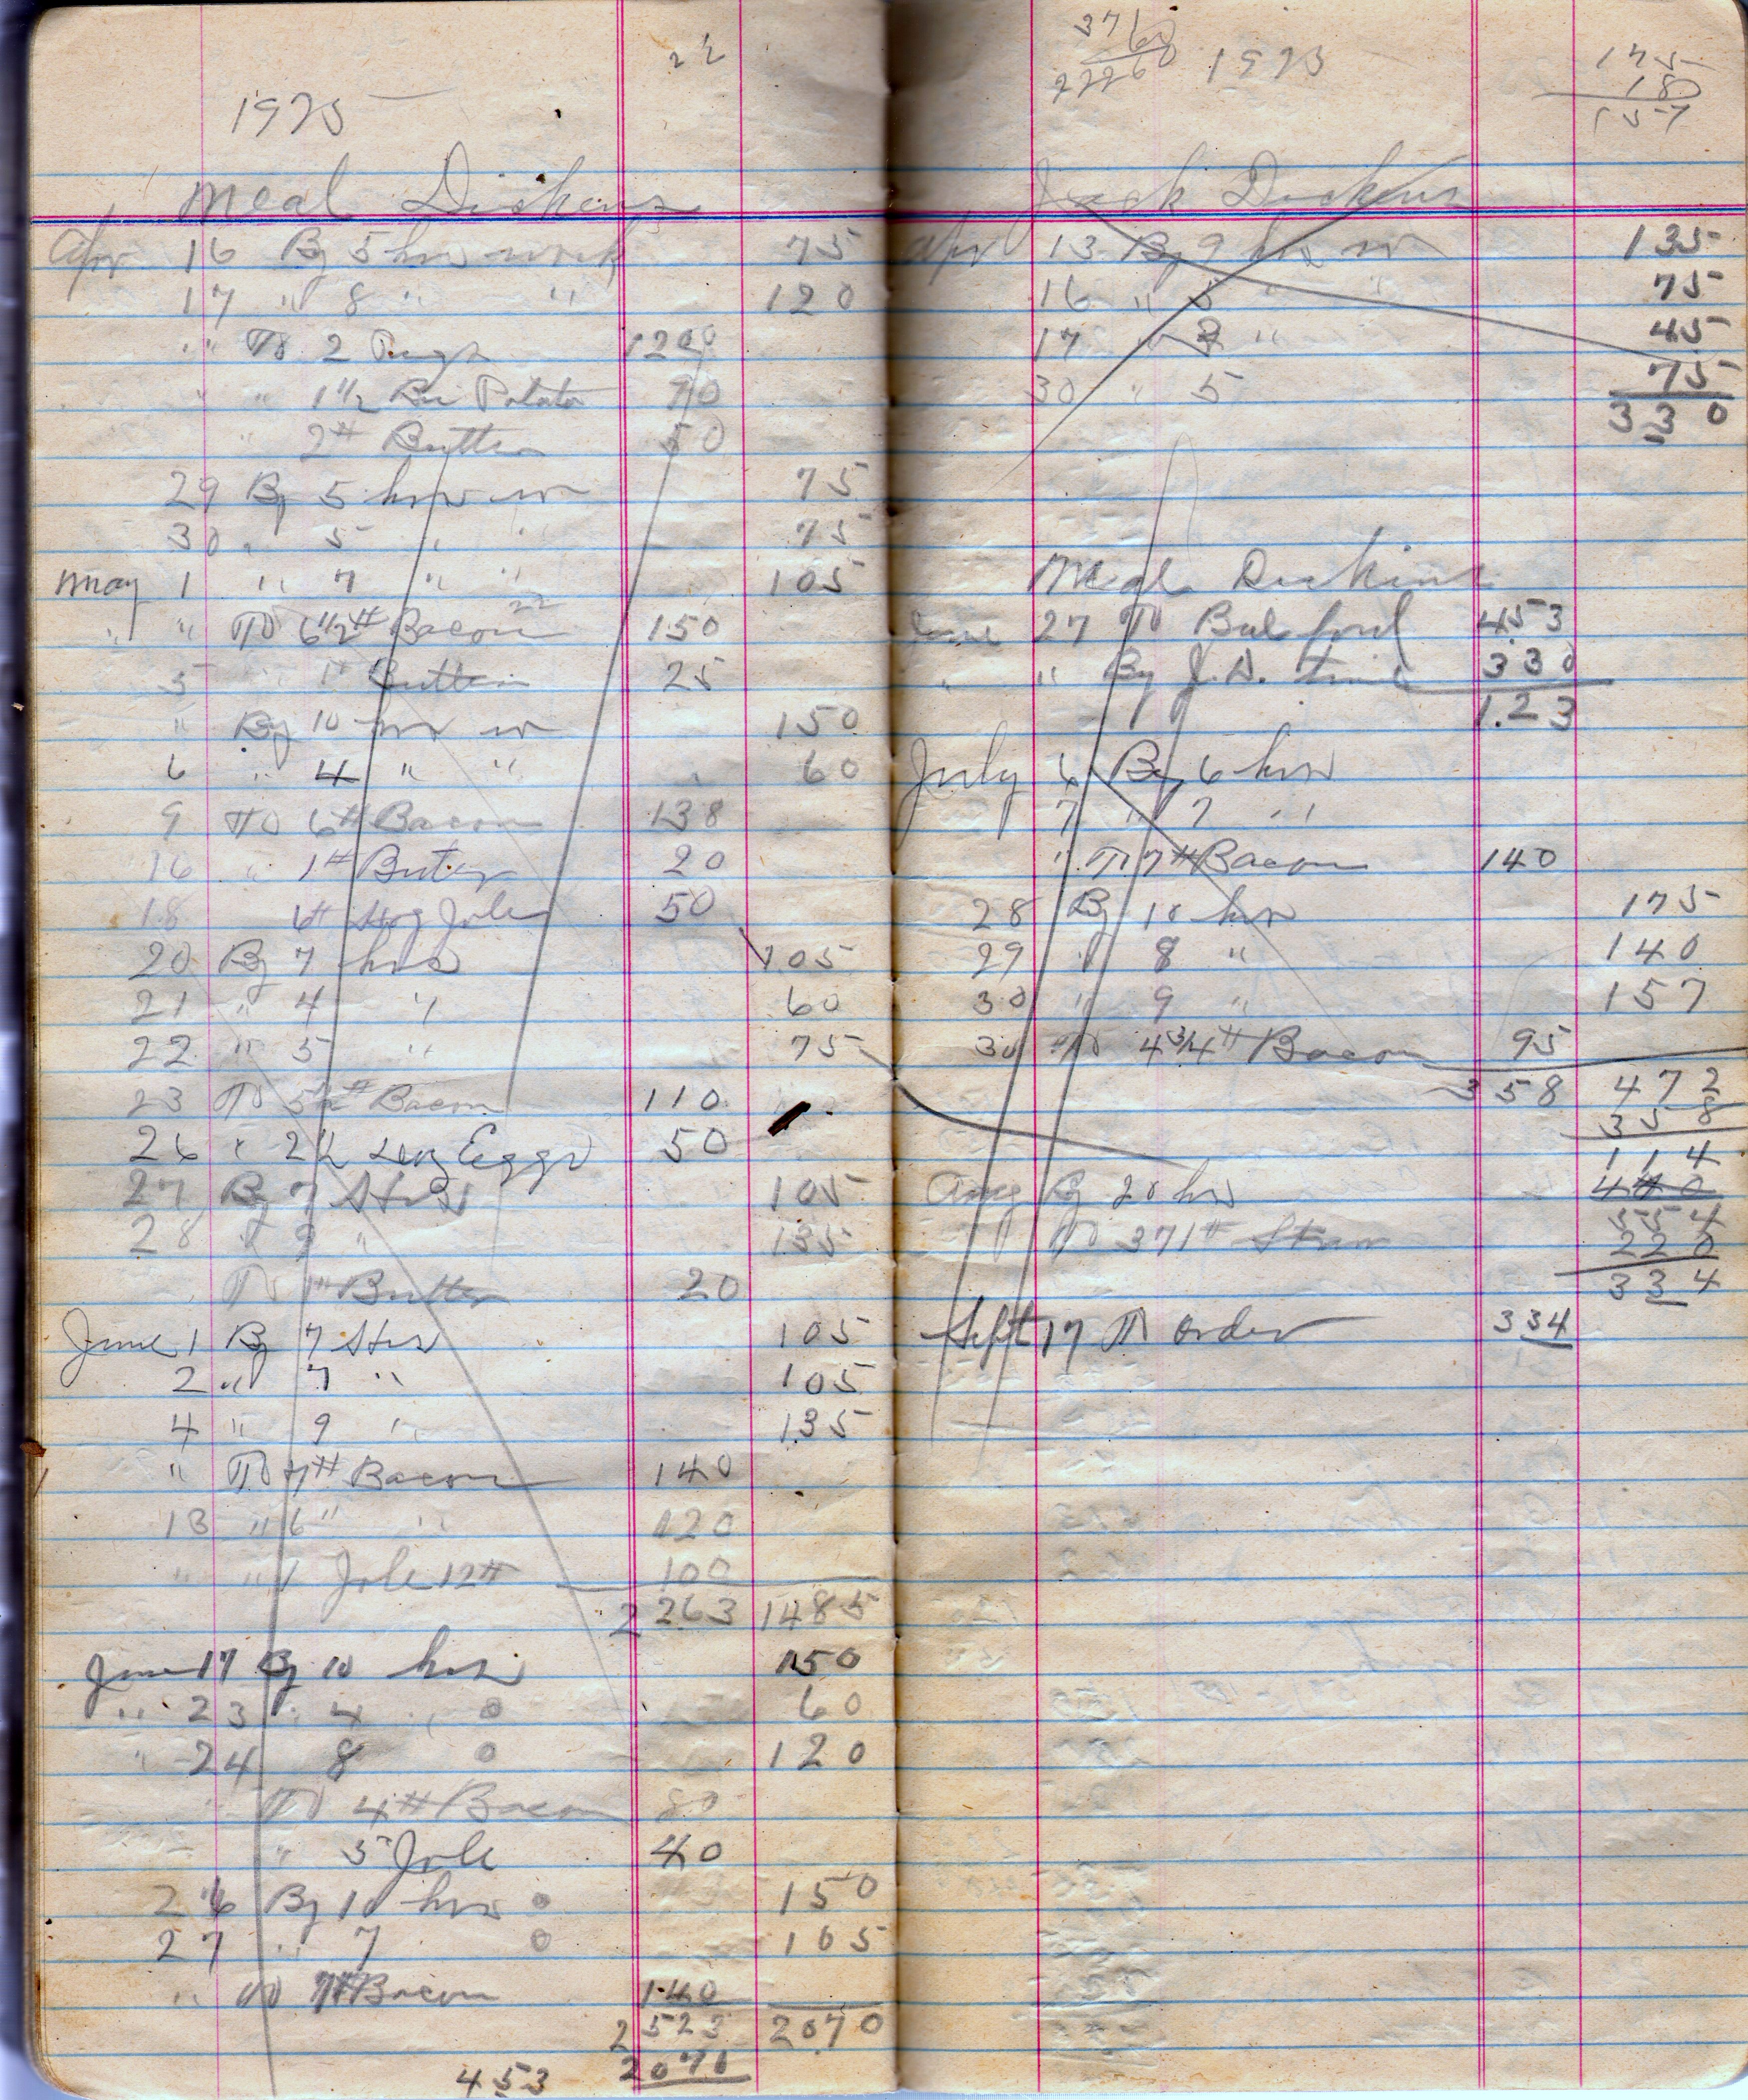 22
1925
Meal Dickens
Apr 16 By 5 hrs work 75
17 " 8 " " 120
" To 2 Pigs 1200
" " 1 1/2 Bu Potato 90
" 2# Butter 50
29 By 5 hrs w 75
30 " 5 " " 75
May 1 " 7 " " 105
" " To 6 1/2# Bacon 22 150
5 " 1# Butter 25
" By 10 hrs w 150
6 " 4 " " 60
9 To 6# Bacon 138
16 " 1# Buter 20
18 6# Hog Jole 50
20 By 7 hrs 105
21 " 4 " 60
22 " 5 " 75
23 To 5 1/2# Bacon 110
26 " 2 Eggs 50
27 By 7 Hrs 105
28 " 9 " 135
To 1# Butter 20
June 1 By 7 Hrs 105
2 " 7 " 105
4 " 9 " 135
" To 7# Bacon 140
13 " 6 " " 120
" " 1 Jole 12# 100
2263 1485
June 17 By 10 hrs 150
" 23 " 4 " 0 60
" 24 8 0 120
To 4# Bacon 80
" 5 Jole 40
26 By 10 hrs 0 150
27 " 7 0 105
" To 7# Bacon 140
2523 2070
2070
453
1925
175
180
157
Jack Dickens
Apr 13 By 9 hrs w 135
16 " 5 " " 75
17 " 3 " 45
30 " 5 75
330
Meal Dickens
June 27 To Bal ford 453
" " By J.D. time 330
1.23
July 6 By 6 hrs
7 " 7 "
" To 7# Bacon 140
28 By 10 hrs 175
29 " 8 " 140
30 " 9 " 157
30 To 4 3/4# Bacon 95
358 472
358
114
Aug By 20 hrs 440
554
To 371# Straw 220
334
Sept 17 To order 334